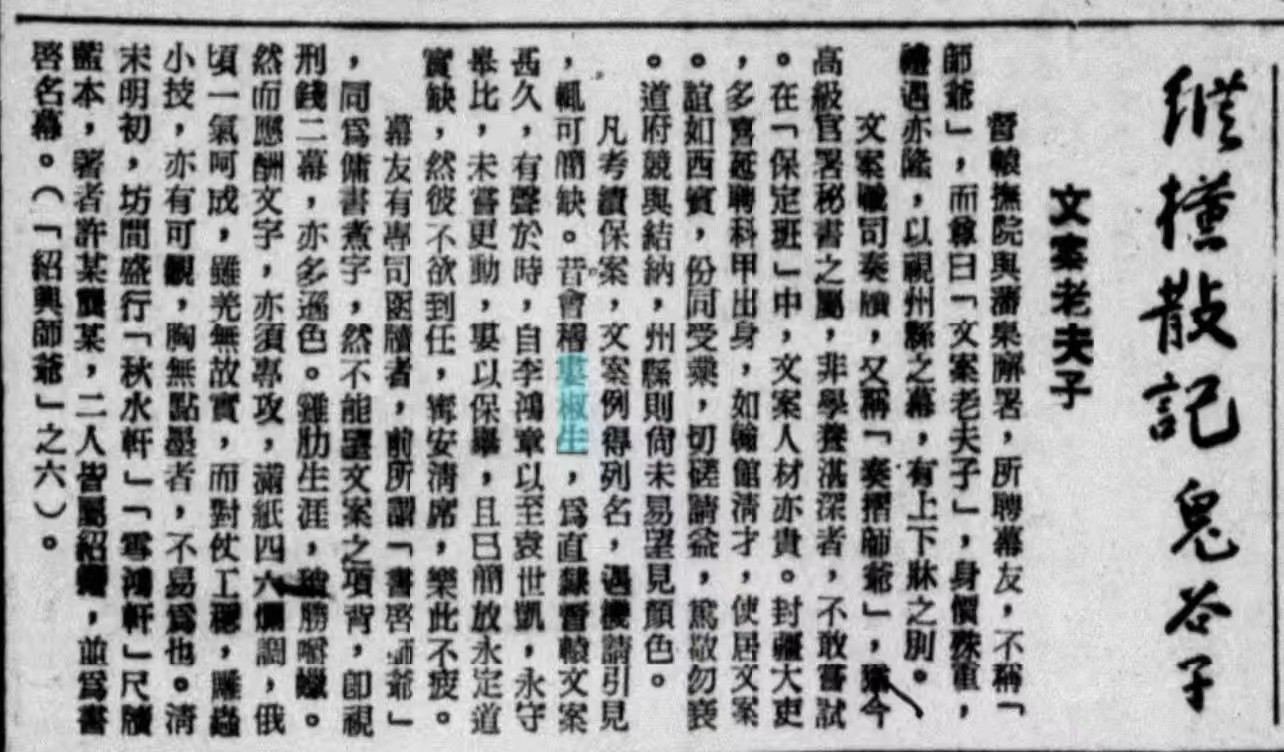 縱橫散記 鬼谷子
文案老夫子
督轅撫院與藩臬廨署,所聘幕友,不稱「
師爺」,而尊曰「文案老夫子」,身價殊重,
禮遇亦隆,以視州縣之幕,有上下牀之別。
文案職司奏牘,又稱「奏摺師爺」,今
高級官署秘書之屬,非學養湛深者,不敢嘗試
。在「保定班」中,文案人材亦貴。封疆大吏
,多會延聘科甲出身,如翰館清才,使居文案
。誼如西賓,份同受業,切磋請益,篤敬勿衰
。道府競與結納,州縣則尙未易望見顏色。
凡考績保案,文案例得列名,遇機請引見
,輒可簡缺。昔會稽婁椒生,爲直隸督轅文案
甚久,有聲於時,自李鴻章以至袁世凱,永守
皋比,未嘗更動,婁以保舉,且已簡放永定道
實缺,然彼不欲到任,寧安淸席,樂此不疲。
幕友有專司函牘者,前所謂「書啓師爺」
,同爲傭書煮字,然不能望文案之項背,卽視
刑錢二幕,亦多遜色。雞肋生涯,勝嚼蠟。
然而應酬文字,亦須專攻,滿紙四六儷調,俄
頃一氣呵成,雖羌無故實,而對仗工穩,雕蟲
小技,亦有可觀,胸無點墨者,不易爲也。淸
末明初,坊間盛行「秋水軒」「雪鴻軒」尺牘
藍本,著者許某龔某,二人皆屬紹,並爲書
啓名幕。(「紹興師爺」之六)。